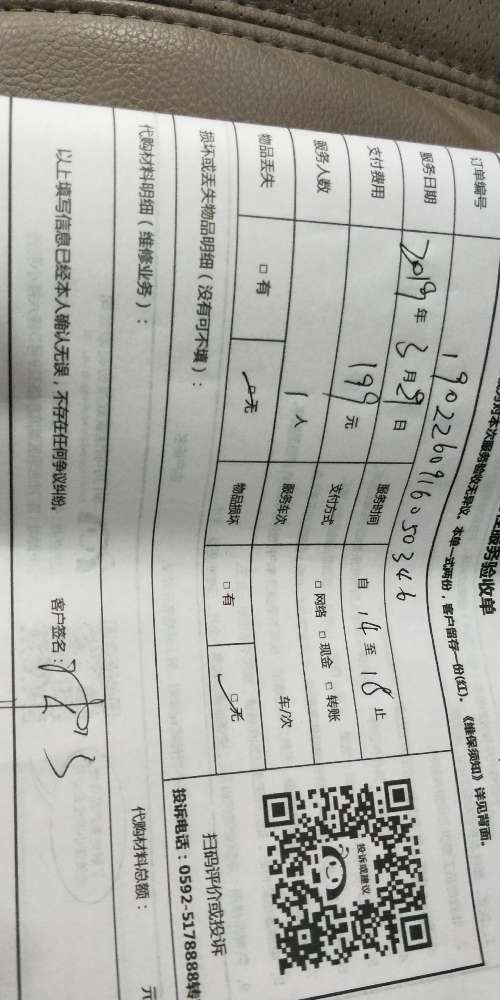 服务验收单
对本次服务验收无异议。本单一式两份，客户留存一份(红)。《维保须知》详见背面。
订单编号 190226091605034 6
服务日期 2019年3月29日 服务时间 自 14 至 18 止
支付费用 199元 支付方式 □ 网络 □ 现金 □ 转账
服务人数 1人 服务车次 车/次
物品丢失 □ 有 □ 无 物品损坏 □ 有 □ 无
损坏或丢失物品明细（没有可不填）：
投诉或建议
扫码评价或投诉
投诉电话：0592-5178888转
代购材料明细（维修业务）：
代购材料总额： 元
以上填写信息已经本人确认无误，不存在任何争议纠纷。 客户签名：